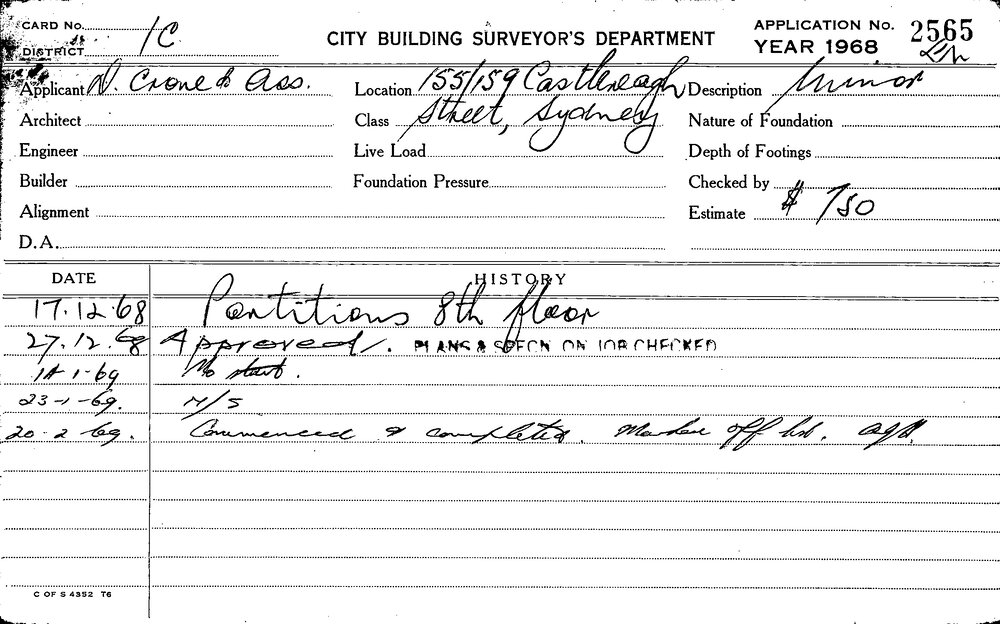 CARD No. 1C
DISTRICT
CITY BUILDING SURVEYOR'S DEPARTMENT
APPLICATION No. 2565
YEAR 1968
Applicant N. Crone & Ass.
Location 155/159 Castlereagh
Description Minor
Architect
Class Street, Sydney
Nature of Foundation
Engineer
Live Load
Depth of Footings
Builder
Foundation Pressure
Checked by
Alignment
Estimate $ 750
D.A.
DATE HISTORY
17.12.68 Partitions 8th floor
27.12.68 Approved. PLANS & SPECN ON JOB CHECKED
1-69 No start.
23-1-69. N/S
20-2-69. Commenced & completed. off
C OF S 4352 T6